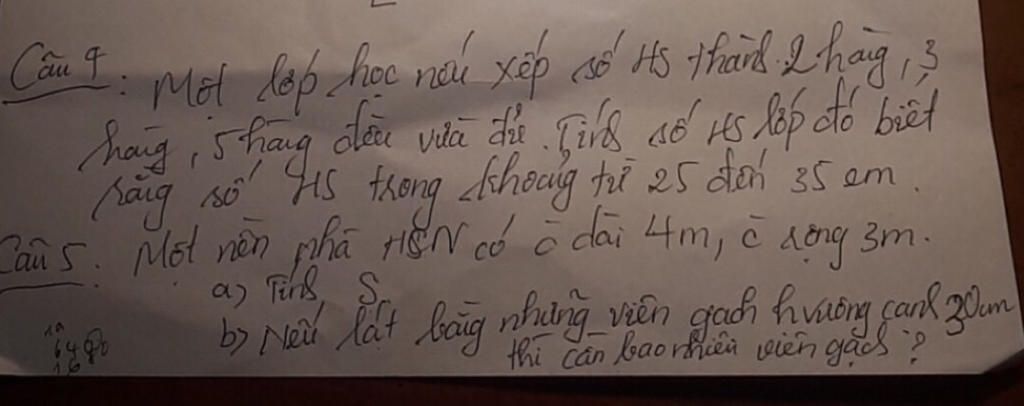 Câu 4: Một lớp học nếu xếp số HS thành 2 hàng, 3
hàng, 5 hàng đều vừa đủ. Tính số HS lớp đó biết
rằng số HS trong khoảng từ 25 đến 35 em.
Câu 5. Một nền nhà HCN có c̄ dài 4m, c̄ rộng 3m.
a) Tính S
b) Nếu lát bằng những viên gạch h vuông cạnh 30cm
thì cần bao nhiêu viên gạch?